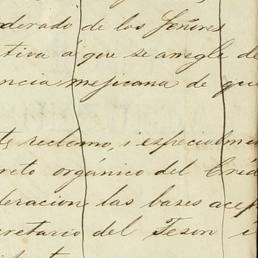 derado de los Señores
tiva a que se arregle de
encia mejicana de que
te reclamo, i especialmen
reto orgánico del Créd
deracion las bases acep
cretario del Tesoro i